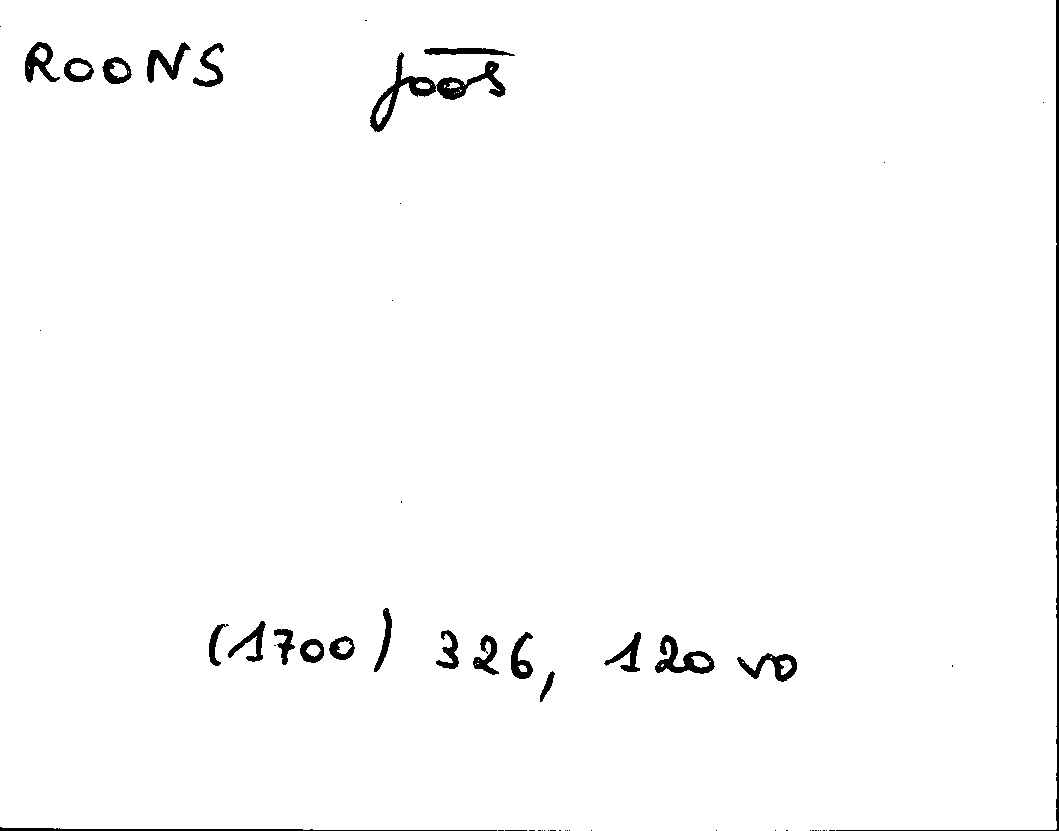 ROONS Joos
(1700) 326, 120 vo